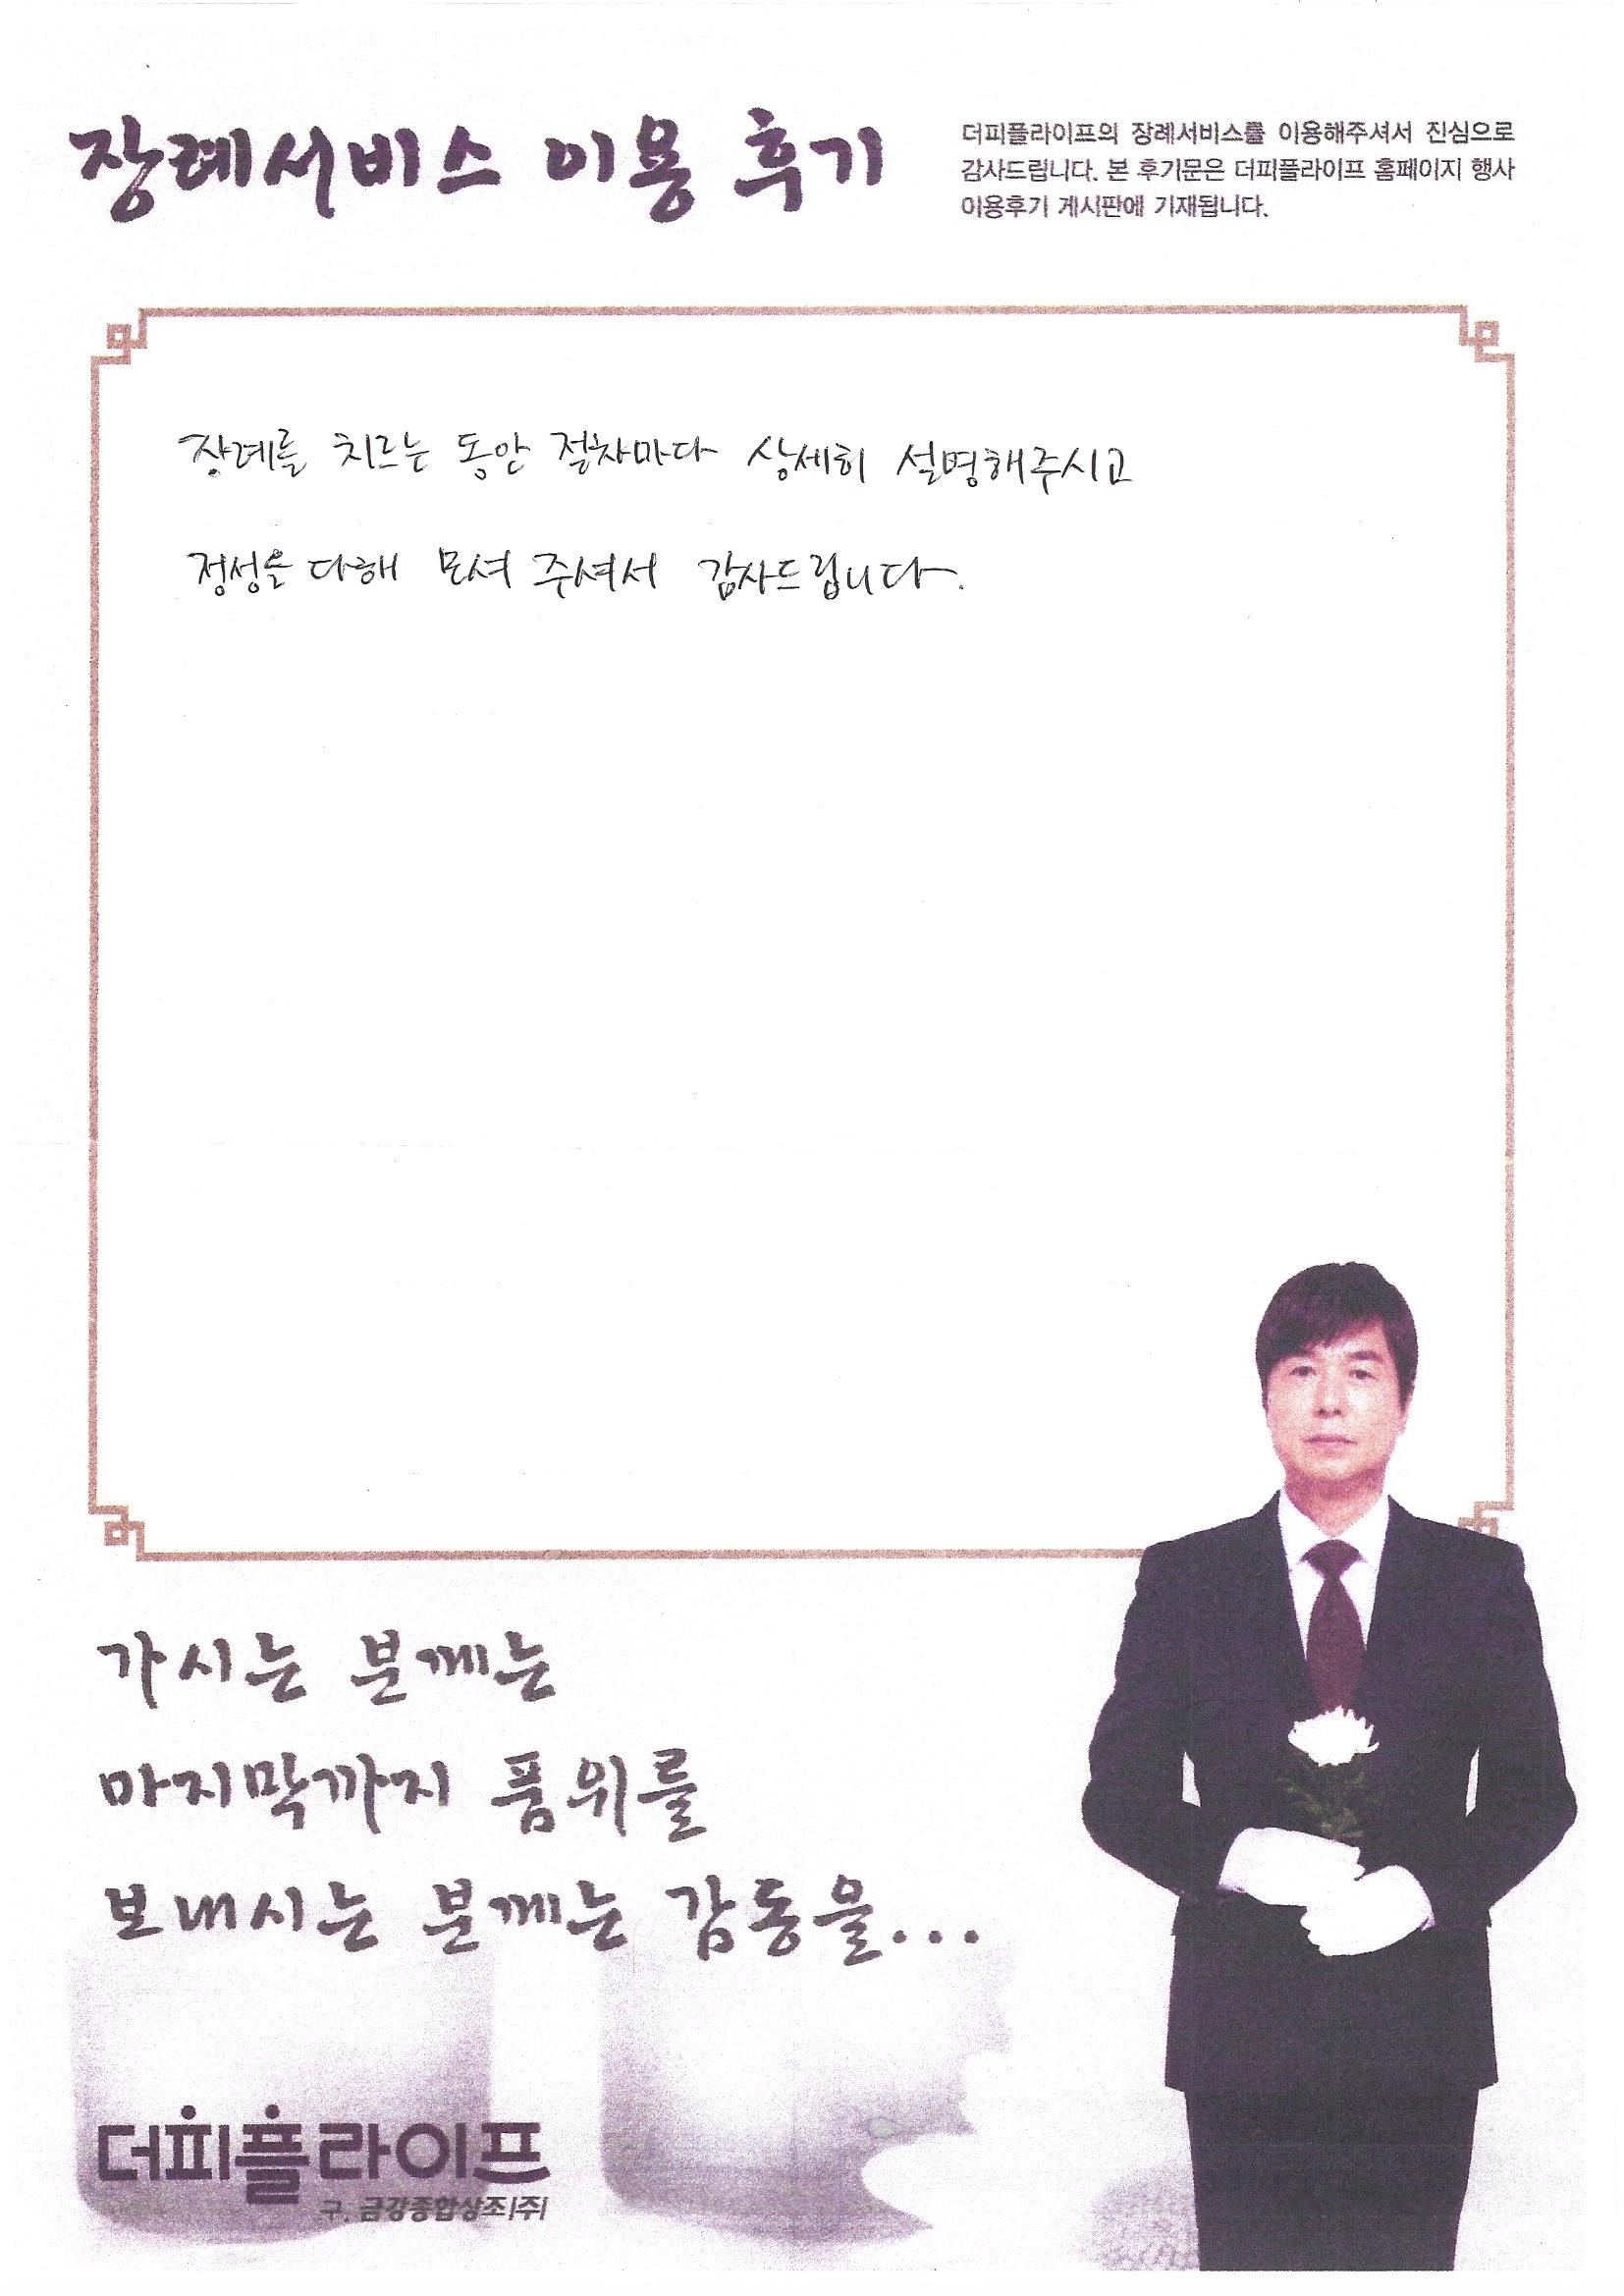 장례서비스 이용 후기
더피플라이프의 장례서비스를 이용해주셔서 진심으로
감사드립니다. 본 후기문은 더피플라이프 홈페이지 행사
이용후기 게시판에 기재됩니다.
장례를 치르는 동안 절차마다 상세히 설명해주시고
정성을 다해 모셔 주셔서 감사드립니다.
가시는 분께는
마지막까지 품위를
보내시는 분께는 감동을...
더피플라이프
구. 금강종합상조(주)